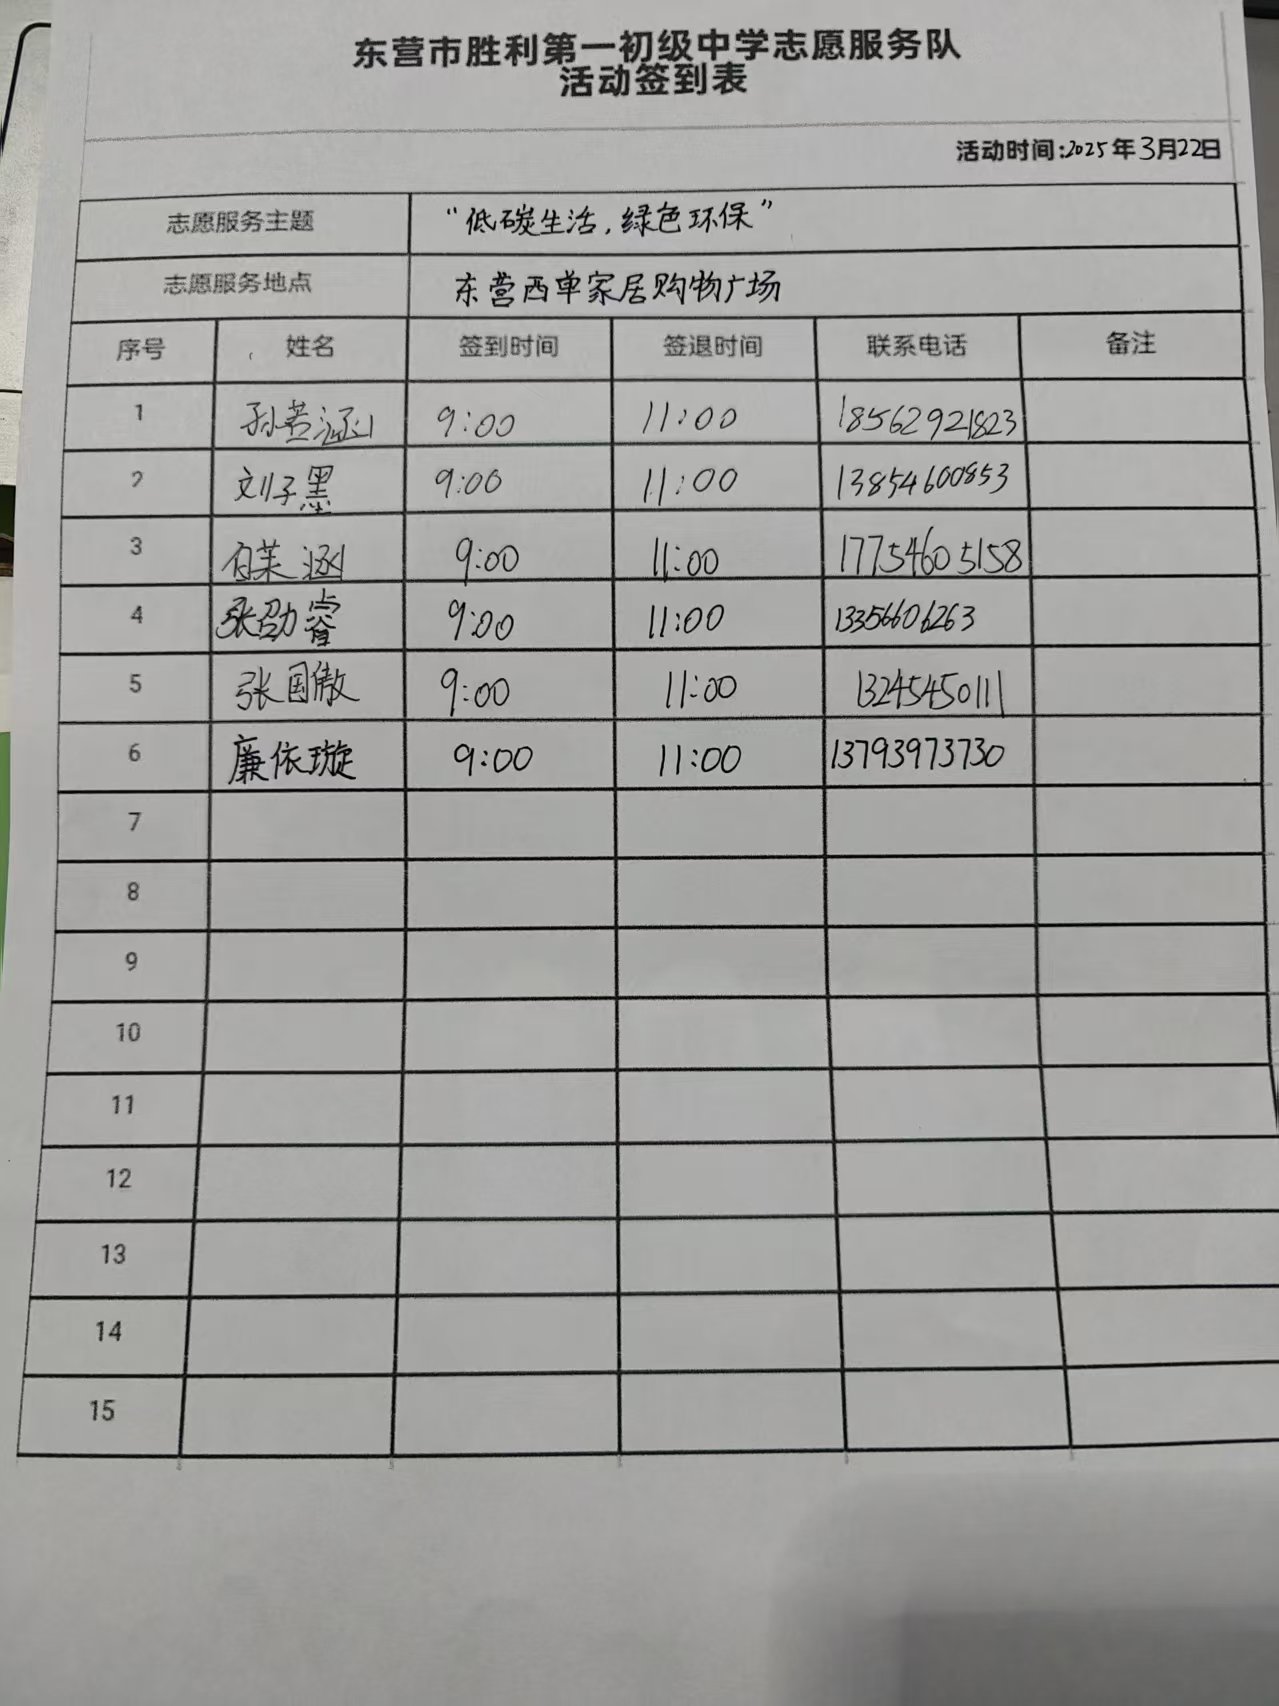 东营市胜利第一初级中学志愿服务队
活动签到表
活动时间:2025年3月22日
志愿服务主题 “低碳生活，绿色环保”
志愿服务地点 东营西单家居购物广场
序号 姓名 签到时间 签退时间 联系电话 备注
1 孙若涵 9:00 11:00 18562921823
2 刘子墨 9:00 11:00 13854600853
3 白茉涵 9:00 11:00 17754605158
4 张劭睿 9:00 11:00 13356606263
5 张国傲 9:00 11:00 13245450111
6 廉依璇 9:00 11:00 13793973730
7
8
9
10
11
12
13
14
15